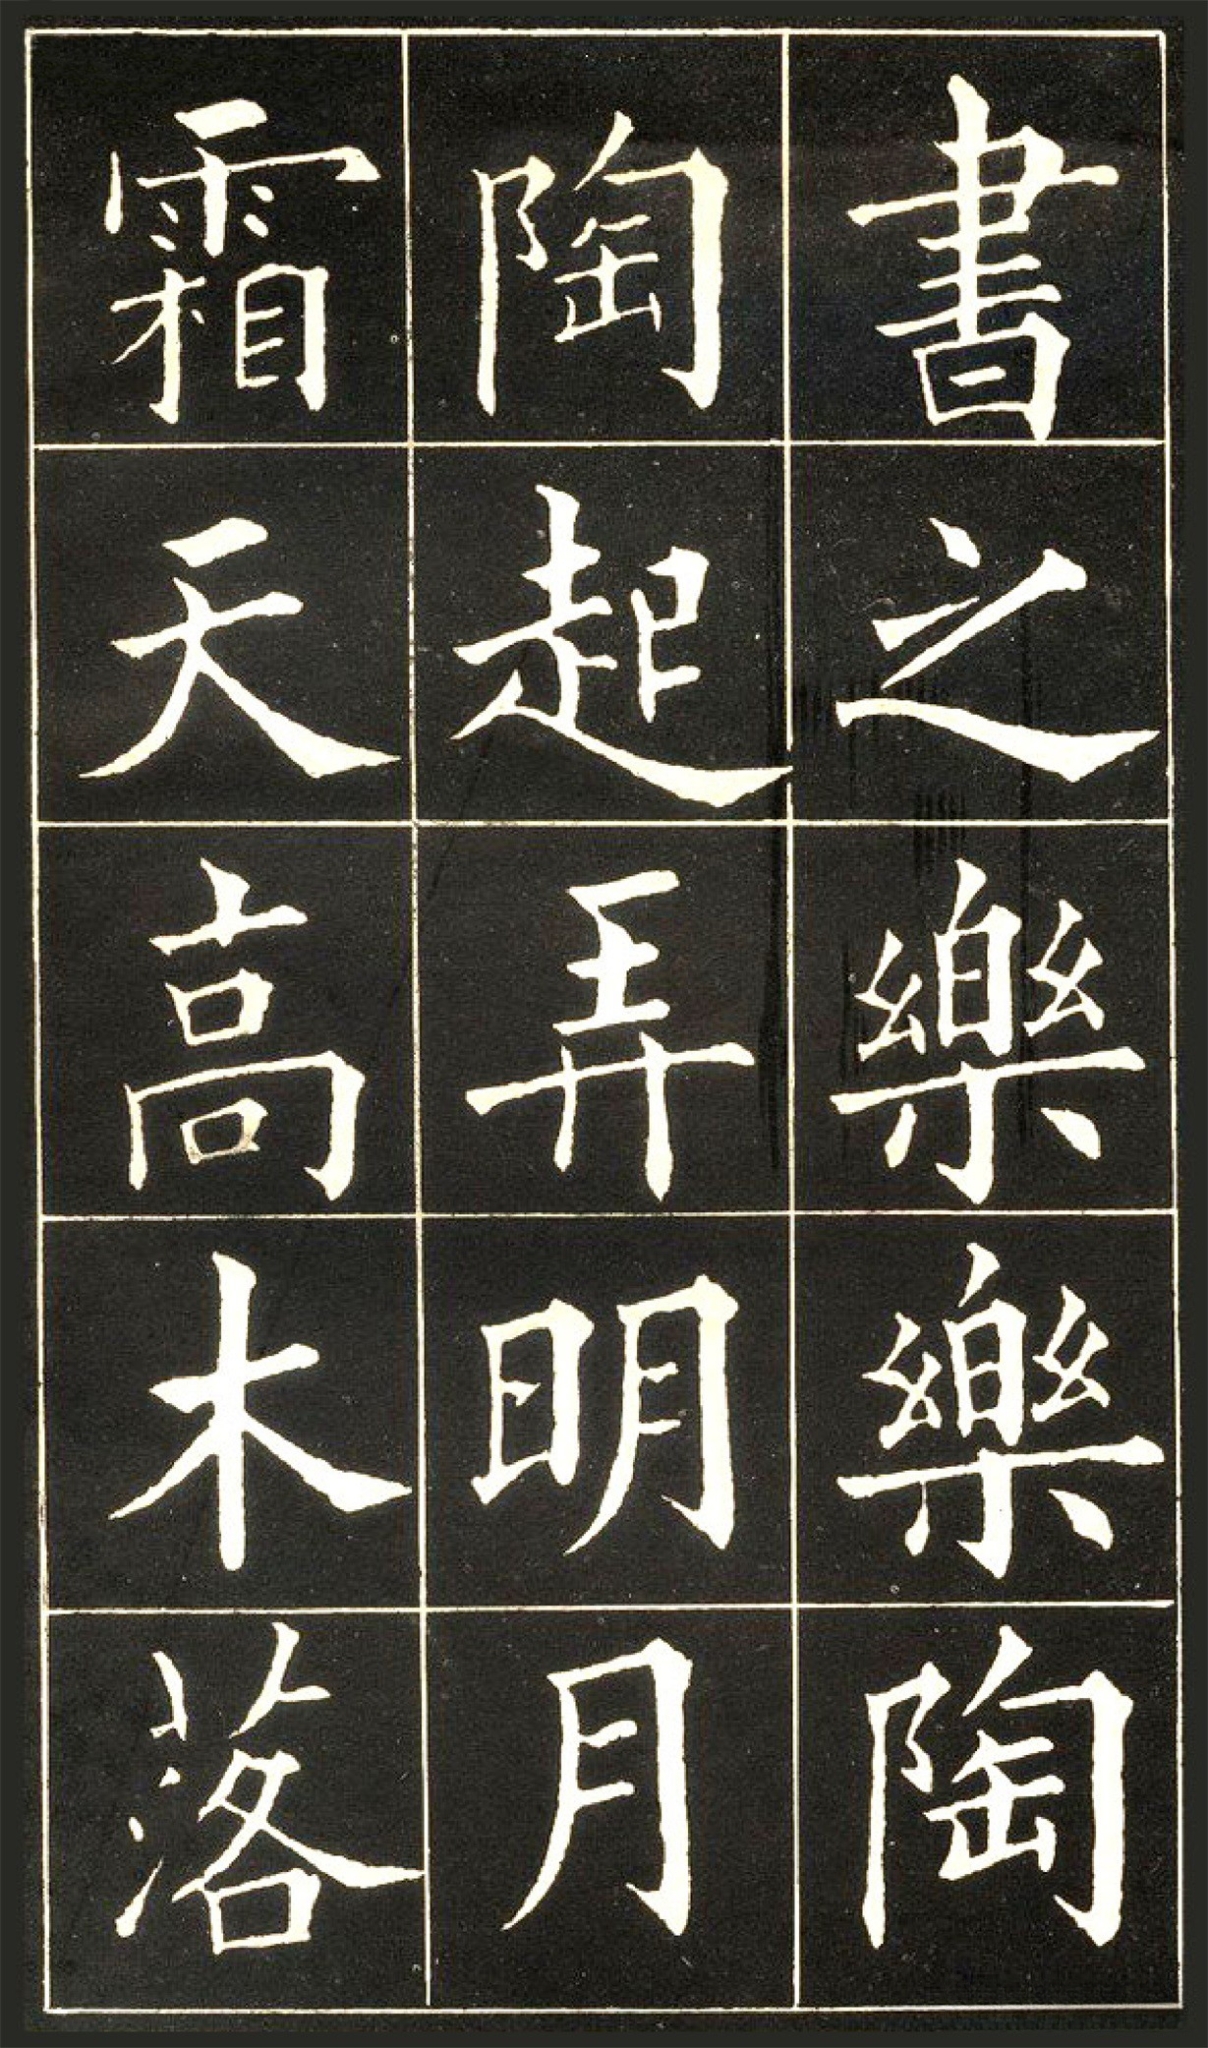 書之樂樂陶
陶起弄明月
霜天高木落